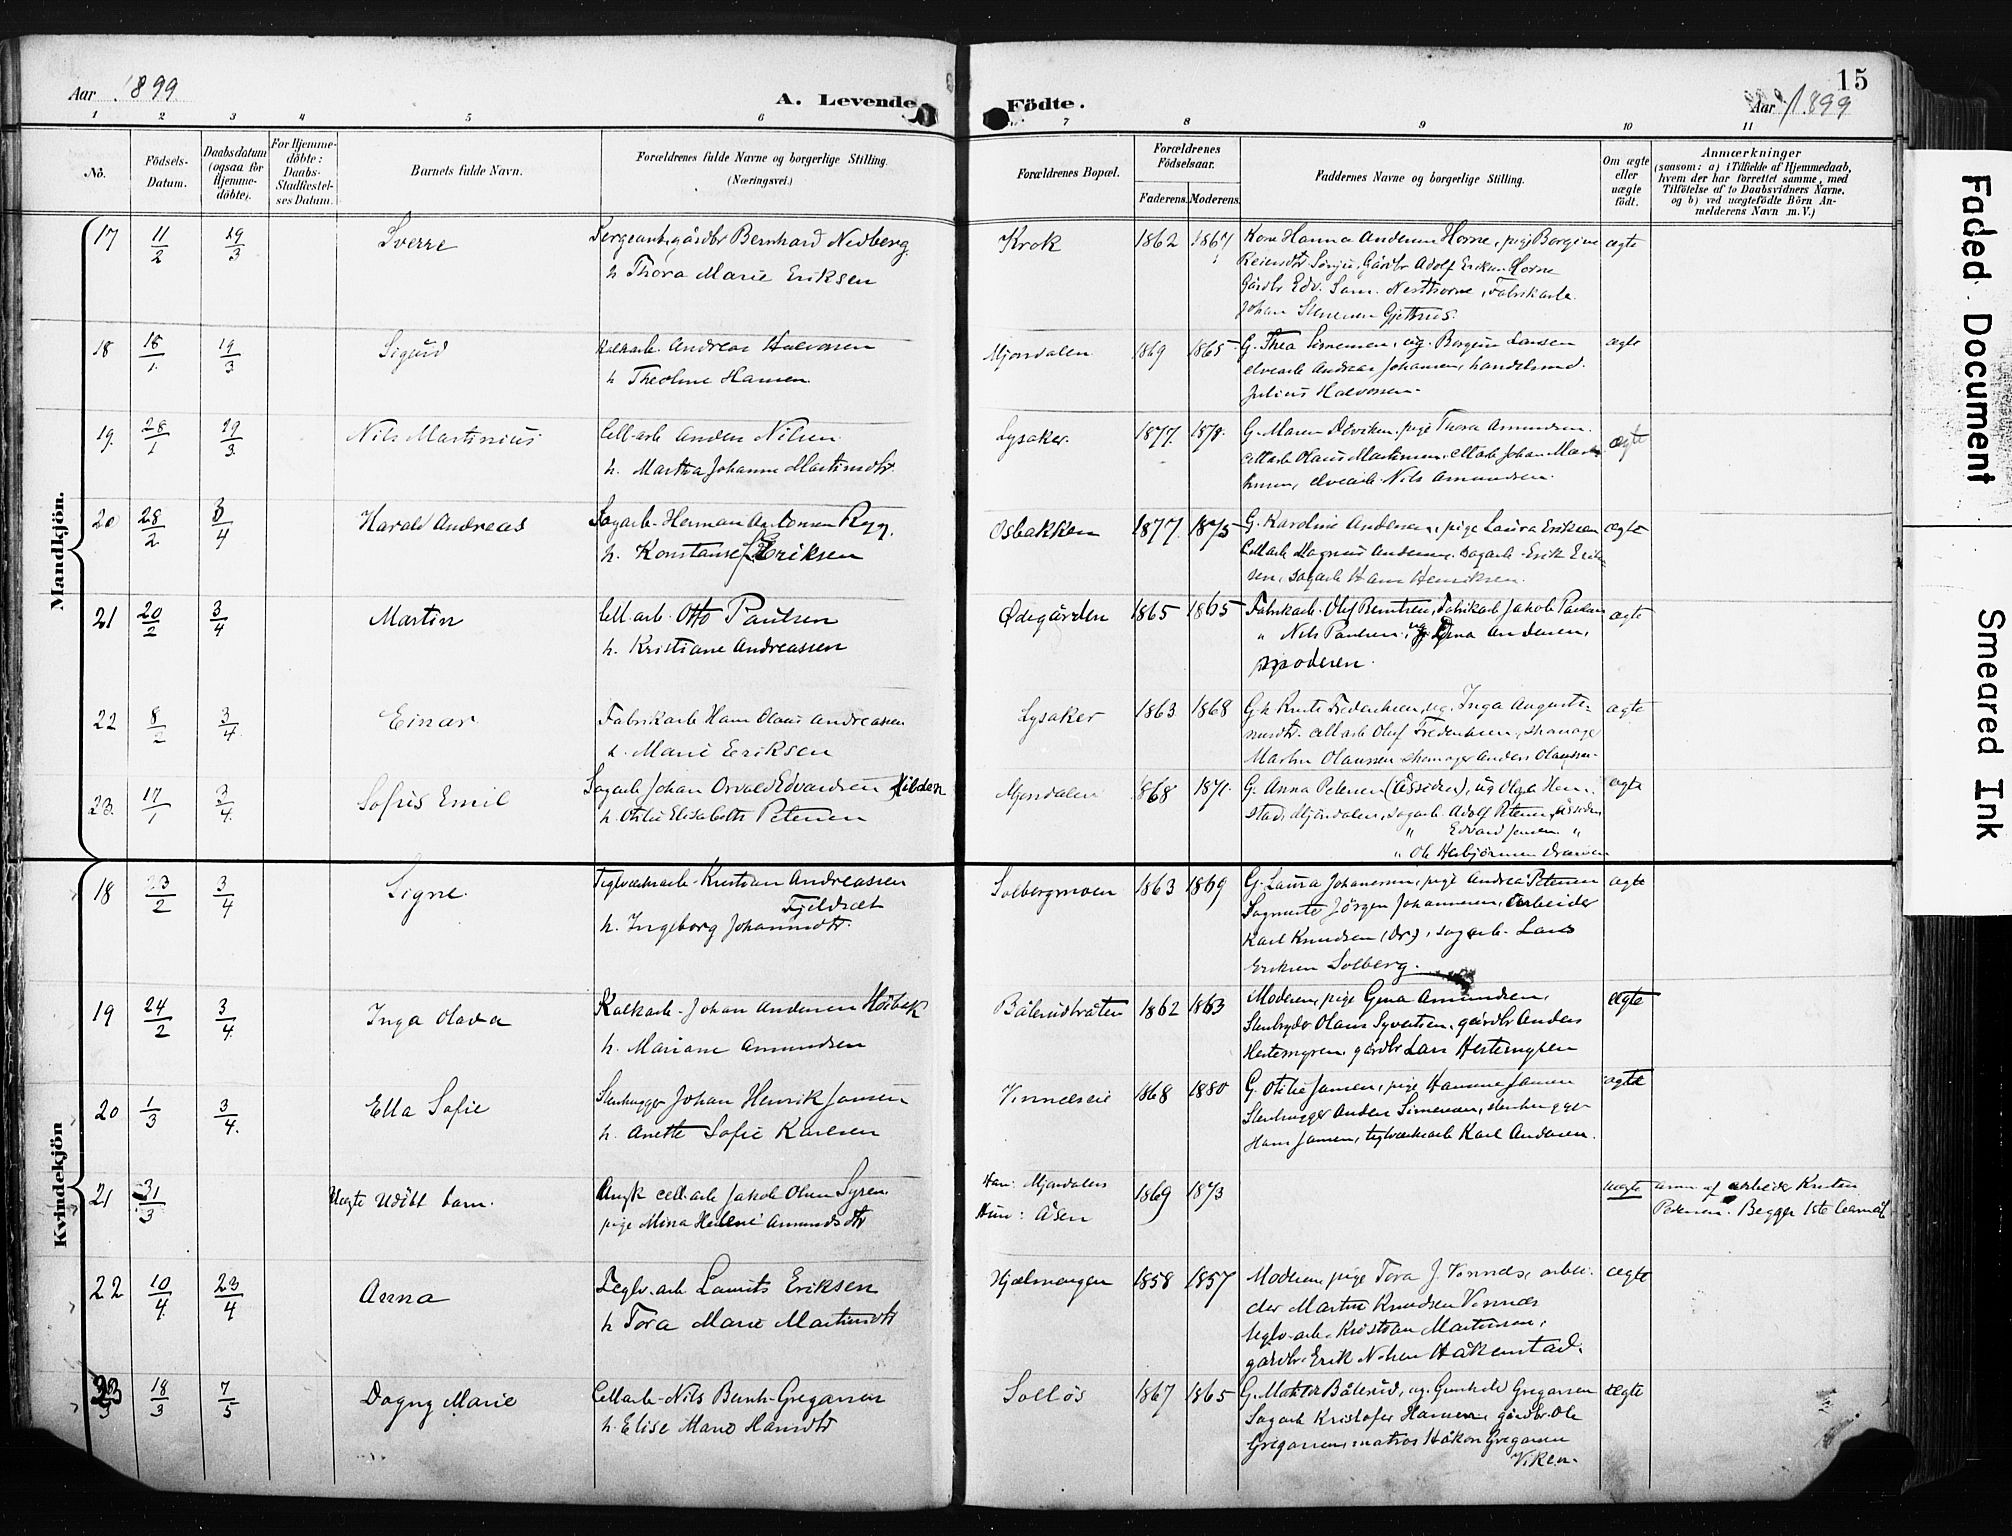 Aar 1899
A. Levende
Födte.
15
Aar 1899
1 2 3 4 5 6 7 8 9 10 11
No.
Födsels-Datum.
Daabsdatum (ogsaa for Hjemme-döbte).
For Hjemme-döbte: Daabs-Stadfæstel-ses Datum.
Barnets fulde Navn.
Forældrenes fulde Navne og borgerlige Stilling.
(Næringsvei.)
Forældrenes Bopæl.
Forældrenes Födselsaar.
Faderens. Moderens.
Faddernes Navne og borgerlige Stilling.
Om ægte eller uægte födt.
Anmærkninger
(saasom: a) i Tilfælde af Hjemmedaab, hvem der har forrettet samme, med Tilföielse af to Daabsvidners Navne, og b) ved uægtefödte Börn An-melderens Navn m.V.)
Mandkjön.
17 11/2 19/3 Sverre
Sergeant, gårdbr Bernhard Nedberg
h. Thora Marie Eriksen
Krok 1862 1867
Kone Hanna Andersen Horne, pige Borgine
Gårdbr Adolf Eriksen Horne
Gårdbr Edv. Sam. Nesthorne, Fabrikarb.
Johan Simensen
ægte
18 18/1 19/3 Sigurd
Kalkarb. Andreas Halvorsen
h. Theoline Hansen
Mjøndalen 1869 1865
G. Thea Simensen, ug. Borgine Larsen
elvearb Andreas Johansen, handelsmd.
Julius Halvorsen
ægte
19. 28/1 19/3 Nils Martinius
Cell-arb Anders Nilsen
h. Martha Johanne Martinsdtr.
Lysaker 1877 1878.
G. Maren Elviken, pige Thora Amundsen.
Cellarb Olaus Martinsen, cellarb Johan Mar-
tinsen, elvearb Nils Amundsen.
ægte
20 28/2 3/4 Harald Andreas
Sagarb. Herman Antonsen Rygg.
h. Konstanse Eriksen
Osbakken 1877 1875
G. Karoline Andersen, pige Laura Eriksen
Cellarb Magnus Andersen, Sagarb. Erik Erik-
sen, sagarb Hans Henriksen.
ægte
21 20/2 3/4 Martin
Cell.arb. Otto Paulsen
h. Kristiane Andreassen
Ødegården 1865 1865
Fabrikarb. Olaf Berntsen, Fabrikarb Jakob Paulsen
" Nils Paulsen, ug Dina Andersen,
moderen.
ægte
22 8/2 3/4 Einar
Fabrikarb Hans Olaus Andreassen
h. Marie Eriksen
Lysaker 1863 1868
Inga Augusti-
nusdtr. cellarb Oluf Fredriksen, skomager
Martin Olaussen skomager Anders Olaussen
ægte
23. 17/1 3/4 Sofus Emil
Sagarb Johan Osvald Edvardsen Hilden
h. Otilie Elisabeth Petersen
Mjøndalen 1868 1871.
G. Anna Petersen (Åssiden), ug Olga Hem-
stad, Mjøndalen, sagarb. Adolf Petersen, Åssiden
" Edvard Jensen "
" Ole Herbjørnsen Drammen
ægte
Kvindekjön
18 23/2 3/4 Signe
Teglværksarb. Kristian Andreassen
Fjeldsæt
h. Ingeborg Johannsdtr.
Solbergmoen 1863 1869
G. Laura Johannesen, pige Andrea Petersen
Sagmester Jörgen Johannesen, Arbeider
Karl Knudsen (Dr.), sagarb. Lars
Eriksen Solberg.
ægte
19 24/2 3/4 Inga Olava
Kalkarb. Johan Andersen Hösbæk
h. Mariane Amundsen
Bålerudbråten 1862 1863
Moderen, pige Gina Amundsen,
Stenbryder Olaus Syvertsen, gårdbr Anders
Hestemyren, gårdbr Lars Hestemyren
ægte
20 1/3 3/4. Ella Sofie
Stenhugger Johan Henrik Jansen
h. Anette Sofie Karlsen
Vinnæseie 1868 1880
G. Otilie Jansen, pige Hanna Jansen
Stenhugger Anders Simensen, stenhugger
Hans Jansen, teglværksarb Karl Andersen.
ægte
21 31/3 Uægte Udöbt barn.
Ungk cell.arb Jakob Olsen Syren
pige Mina Helene Amundsdtr
Han: Mjøndalen
Hun: Åsen 1869 1873
uægte
anm. af arbeider Kristian
Petersen. Begges 1ste leiermål
22 10/4 23/4 Anna
Teglv.arb Laurits Eriksen
h Tora Marie Martinsdtr
Hjælmengen 1858 1857
Moderen, pige Tora J. Vinnæs, arbei-
der Martin Knudsen Vinnæs
teglv.arb. Kristian Martinsen,
gårdbr. Erik Nilsen Håkenstad.
ægte
23 18/3 7/5 Dagny Marie
Cellarb. Nils Bernh. Gregersen
h. Elise Marie Hansdtr
Solløs 1867 1865
G. Matilde Bålerud, ug. Gunhild Gregersen
Sagarb Kristofer Hansen, gårdbr. Ole
Gregersen, matros Håkon Gregersen
Viken.
ægte
Faded Document
Smeared Ink